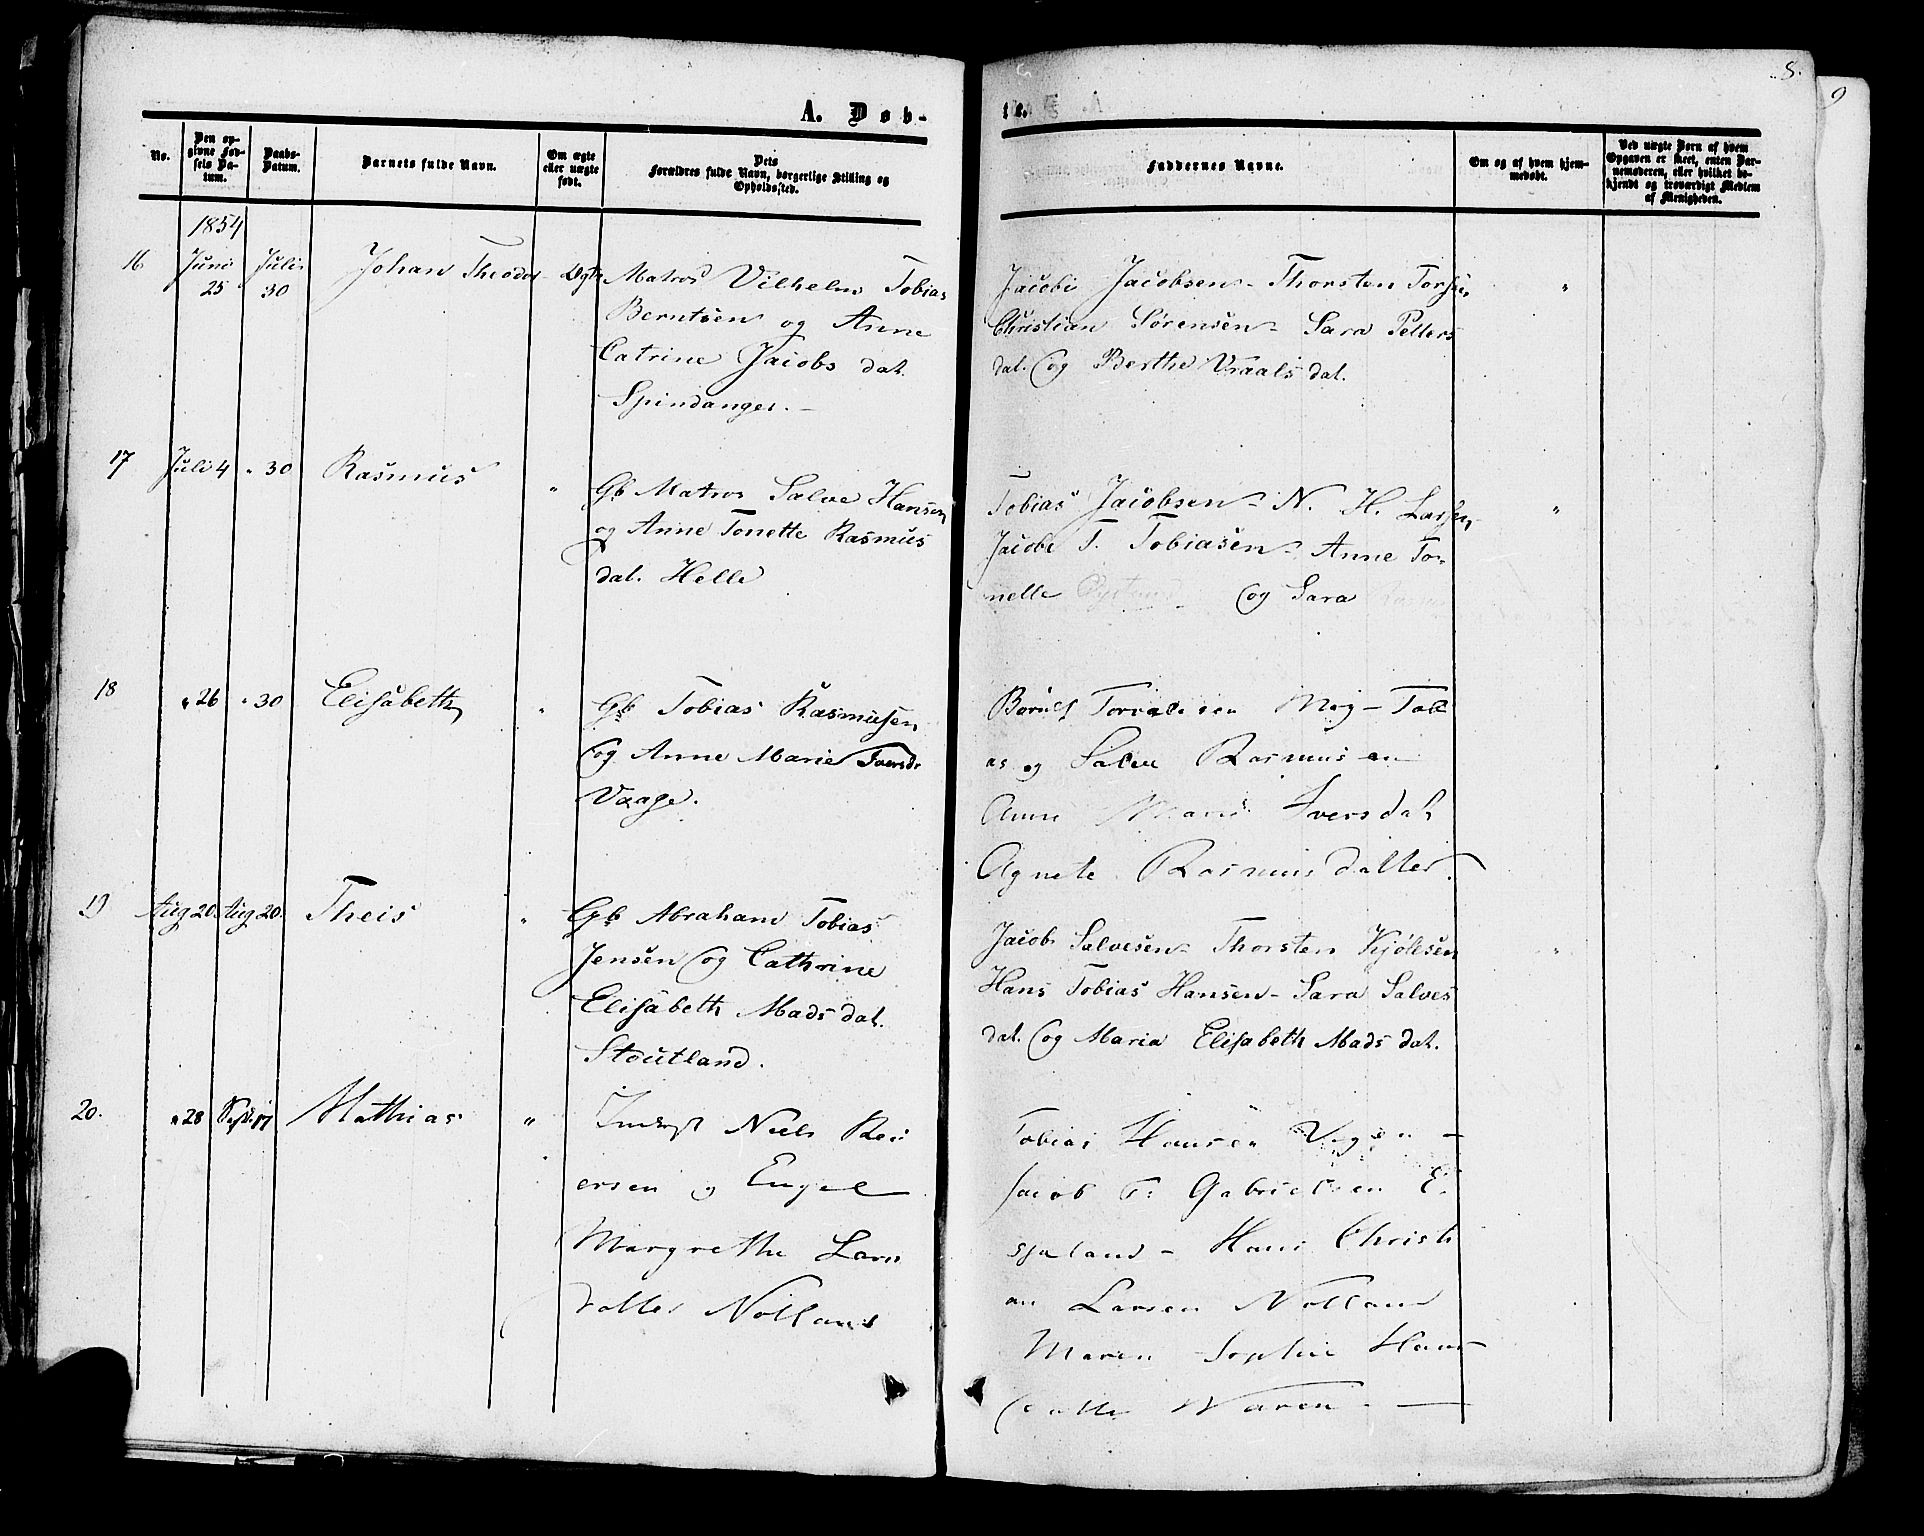 8.
9
A. Døb-
te.
No.
Den op-
givne Fød-
sels Da-
tum.
Daabs-
Datum.
Barnets fulde Navn.
Om ægte
eller uægte
født.
Dets
Forældres fulde Navn, borgerlige Stilling og
Opholdssted.
Faddernes Navne.
Om og af hvem hjem-
medøbt.
Ved uægte Børn af hvem
Opgaven er skeet, enten Bar-
nemoderen, eller hvilket be-
kjendt og troværdigt Medlem
af Menigheden.
1854
16 Juni 25 Juli 30 Johan Theodor Ægte
Matros Vilhelm Tobias
Berntsen og Anne
Catrine Jacobs dat.
Spindanger.
Jacob Jacobsen - Thorsten
Christian Sørensen - Sara Petters
dat. Og Berthe Vraals dat.
"
17 Juli 4 " 30 Rasmus "
Gb Matros Salve Hansen
og Anne Tonette Rasmus
dat. Helle
Tobias Jacobsen - N. H. Larsen
Jacob T. Tobiasen - Anne To-
nette Og Sara
"
18 " 26 " 30 Elisabeth "
Gb Tobias Rasmusen
Og Anne Marie Iversd.
Vaage.
as og Salve Rasmusen
Anne Marie Iversdat
Agnete Rasmusdatter.
19 Aug 20. Aug 20. Theis "
Gb Abraham Tobias
Jensen Og Cathrine
Elisabeth Mads dat.
Stoutland.
Jacob Salvesen - Thorsten Kjøllsen
Hans Tobias Hansen - Sara Salves
dat. Og Maria Elisabeth Mads dat.
"
20. " 28 Septr 17 Mathias "
Inderst Niels Rei
ersen og Engel
Margrethe Lars
datter Notland
Tobias Hansen
Jacob T. Gabrielsen E.
land - Hans Christi
an Larsen Notland
Maren Sophie Hans
datter